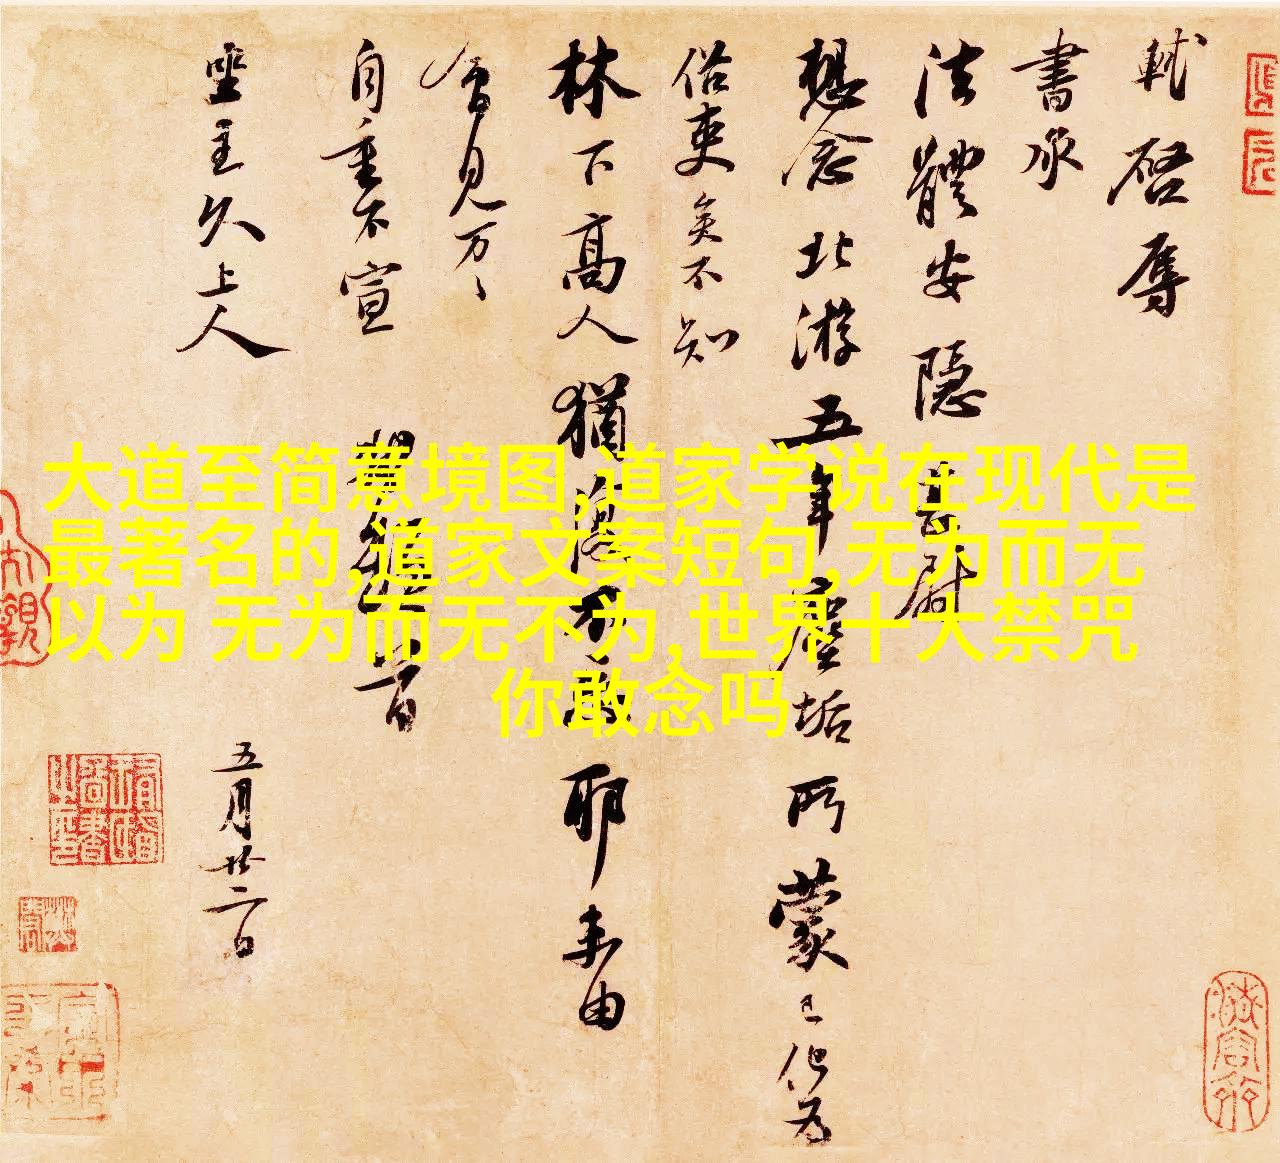 軾啓辱
書承
法體安隱甚慰
想念北游五年塵垢所蒙已化為
俗吏矣不知
林下高人猶復不忘耶未由
會見万〻
自重不宣 軾頓首
坐主久上人
五月廿二日
大道至简意境图,道家学说在现代是
最著名的,道家文案短句,无为而无
以为 无为而无不为,世界十大禁咒
你敢念吗